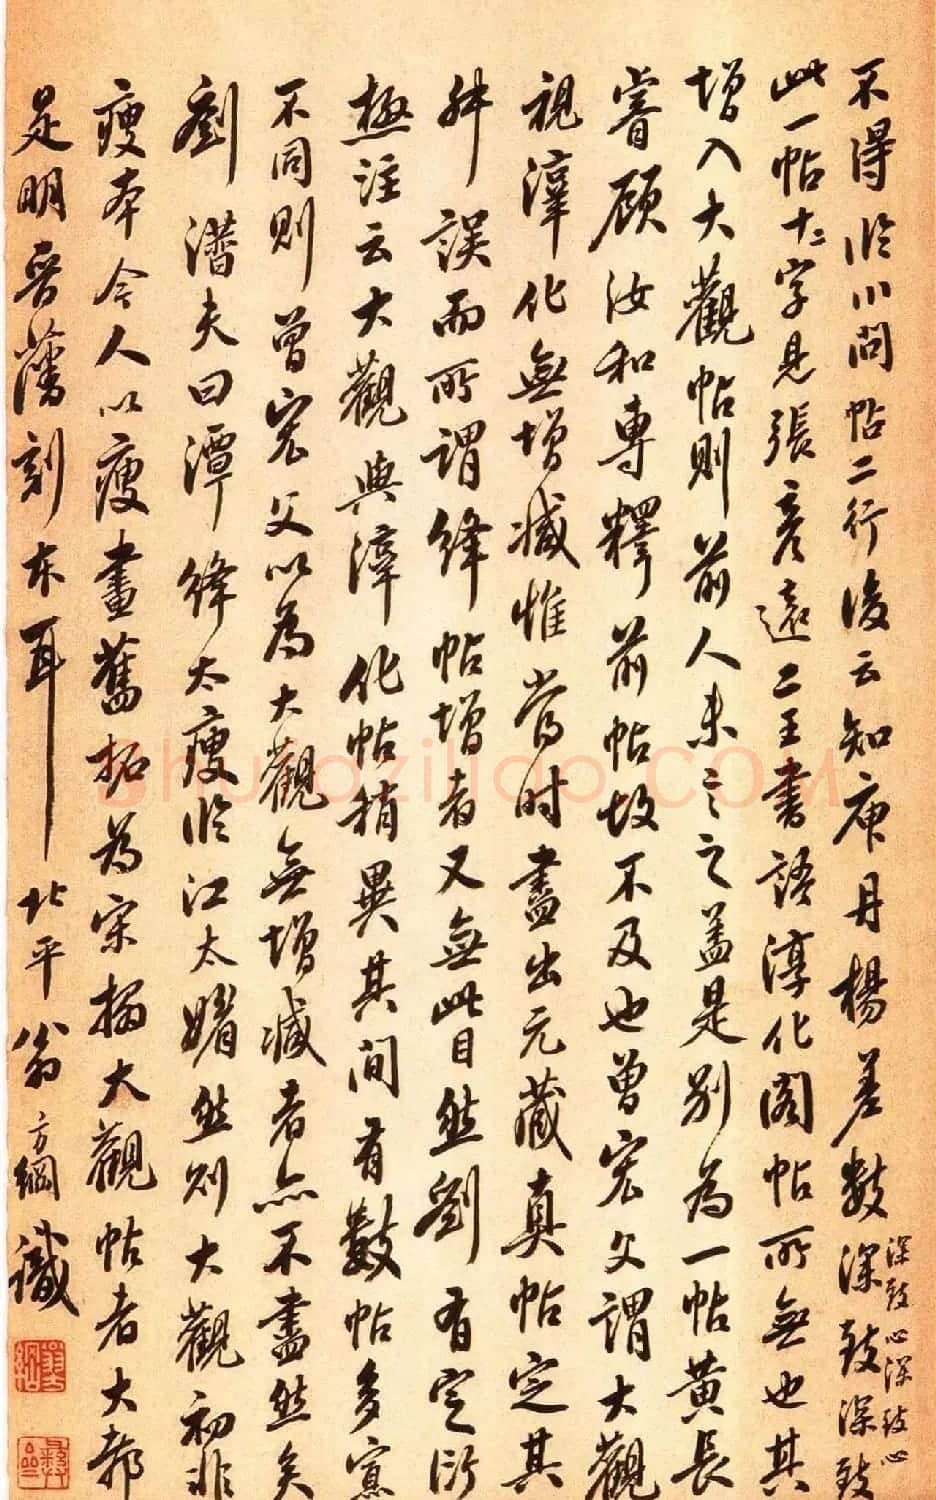 不得臨川問帖二行後云知庾丹楊差數深致深致
深致心深致心
此一帖十二字見張彥遠二王書語淳化閣帖所無也其
增入大觀帖則前人未言之蓋是別為一帖黃長
睿顧汝和專釋前帖故不及也曾宏父謂大觀
視淳化無增減惟當時盡出元藏真帖定其
舛誤而所謂絳帖增者又無此目然劉有定衍
極注云大觀與淳化帖稍異其間有數帖多寡
不同則曾宏父以為大觀無增減者亦不盡然矣
劉潛夫曰潭絳太瘦臨江太媚然則大觀初非
瘦本今人以瘦畫舊拓為宋搨大觀帖者大都
是明晉藩刻本耳北平翁方綱識
Shufaziliao.COM